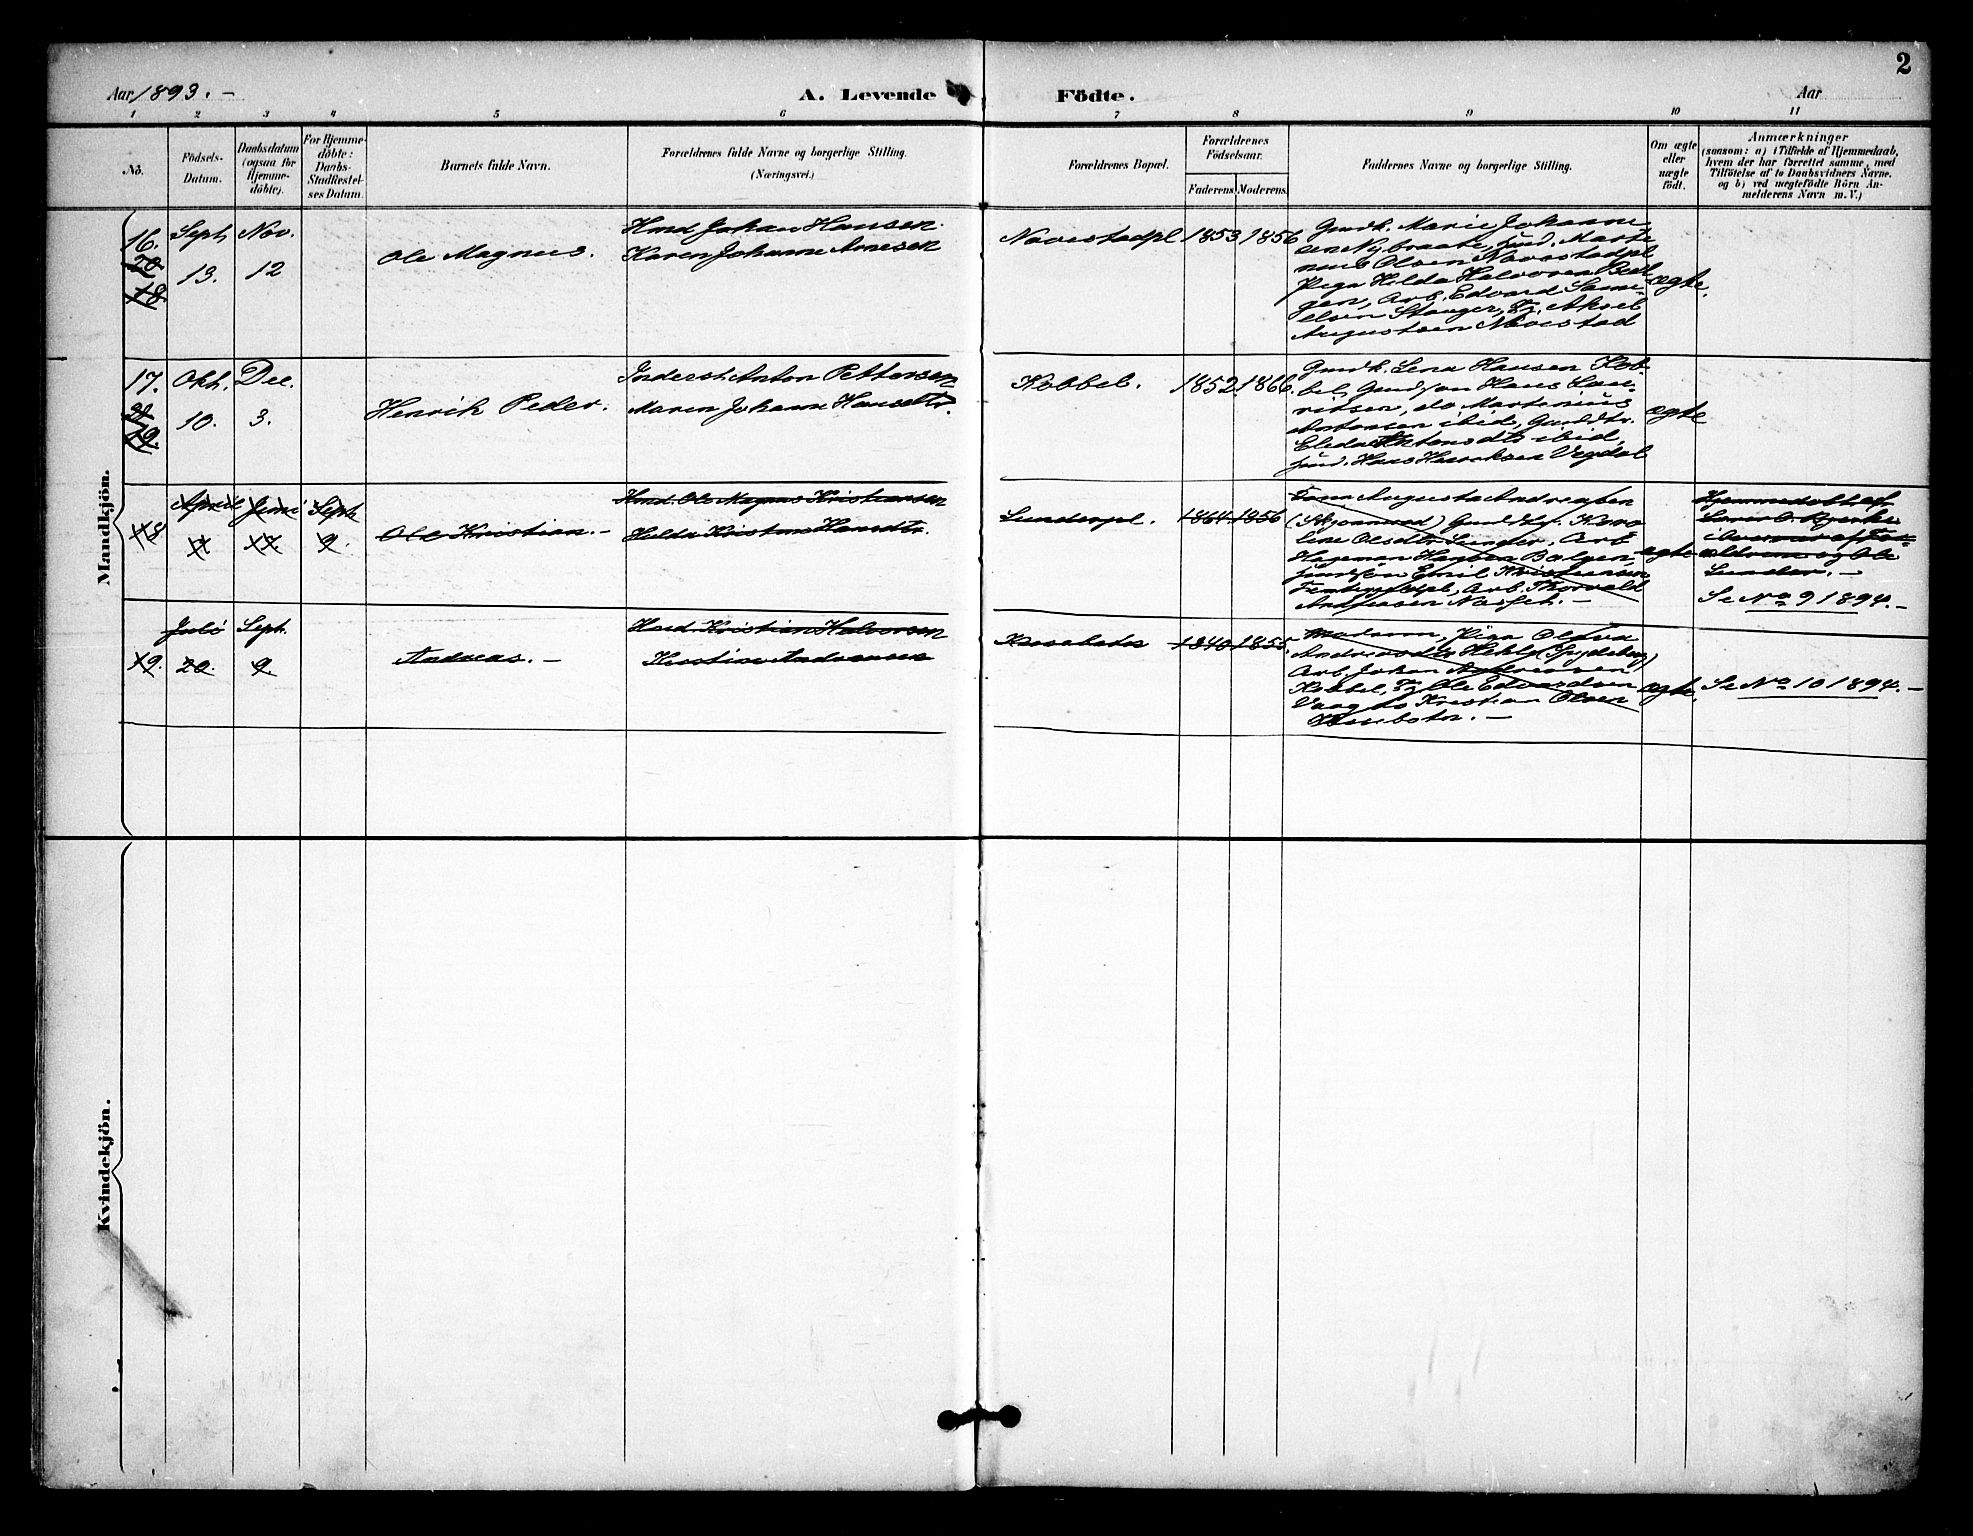 2
Aar 1893. -
A. Levende Födte.
Aar
1 2 3 4 5 6 7 8 9 10 11
No.
Födsels-Datum.
Daabsdatum (ogsaa for Hjemmedöbte).
For Hjemmedöbte: Daabs-Stadfæstelses Datum.
Barnets fulde Navn.
Forældrenes fulde Navne og borgerlige Stilling.
(Næringsvei.)
Forældrenes Bopæl.
Forældrenes Födselsaar.
Faderens. Moderens.
Faddernes Navne og borgerlige Stilling.
Om ægte eller uægte födt.
Anmærkninger
(saasom: a) i Tilfælde af Hjemmedaab,
hvem der har forrettet samme, med
Tilföielse af to Daabsvidners Navne,
og b) ved uægtefödte Börn An-
melderens Navn m. V.)
Mandkjön.
16.
20
18.
Sept
13.
Nov.
12
Ole Magnus.
Hmd Johan Hansen.
Karen Johanne Arnesen
Navestadpl
1853
1856
Gmdk. Marie Johanne
Nybraate, Hmd. Marti-
nius Olsen Navestadpl
Pige Hilda Halvorsen Ber-
gen, Arb. Edvard Samu-
elsen Stanger, Tj. Aksel
Augustsen Navestad
ægte.
17.
21
19.
Okt.
10.
Dec.
3.
Henrik Peder.
Inderst Anton Pettersen
Maren Johanne Hansdtr.
Kobbel.
1852.
1866.
Gmdk. Lena Hansen Kob-
bel, Gmdsøn Hans Lau-
ritsen, do Martinius
Antonsen ibid, Gmddtr.
Antonsdtr ibid,
Hmd. Hans Henriksen Vegdal
ægte
18
April
Juni
Sept
9.
Ole Kristian. -
Hmd. Ole Magnus Kristiansen
Hilda Kristine Hansdtr.
Sunderpl.
1864
1856
Augusta Andreasen
Gmd
line Olsdtr Sunder, Arb
Herman Hansen
Hmdsøn Emil Kristiansen
Arb. Thorvald
Andersen
ægte
Hjemmedöbt af
og Ole
Sunder. -
Se No 9 1894. -
19.
Juli
20.
Sept.
9.
Andreas. -
Hmd. Kristian Halvorsen
Kristine Andreasen
1840
1855.
Madamm, Pige Oleva
(Spydeberg)
Arb. Johan Andreasen
Kobbel, Tj. Ole Edvardsen
do Kristian Olsen
ægte.
Se No 10 1894. -
Kvindekjön.